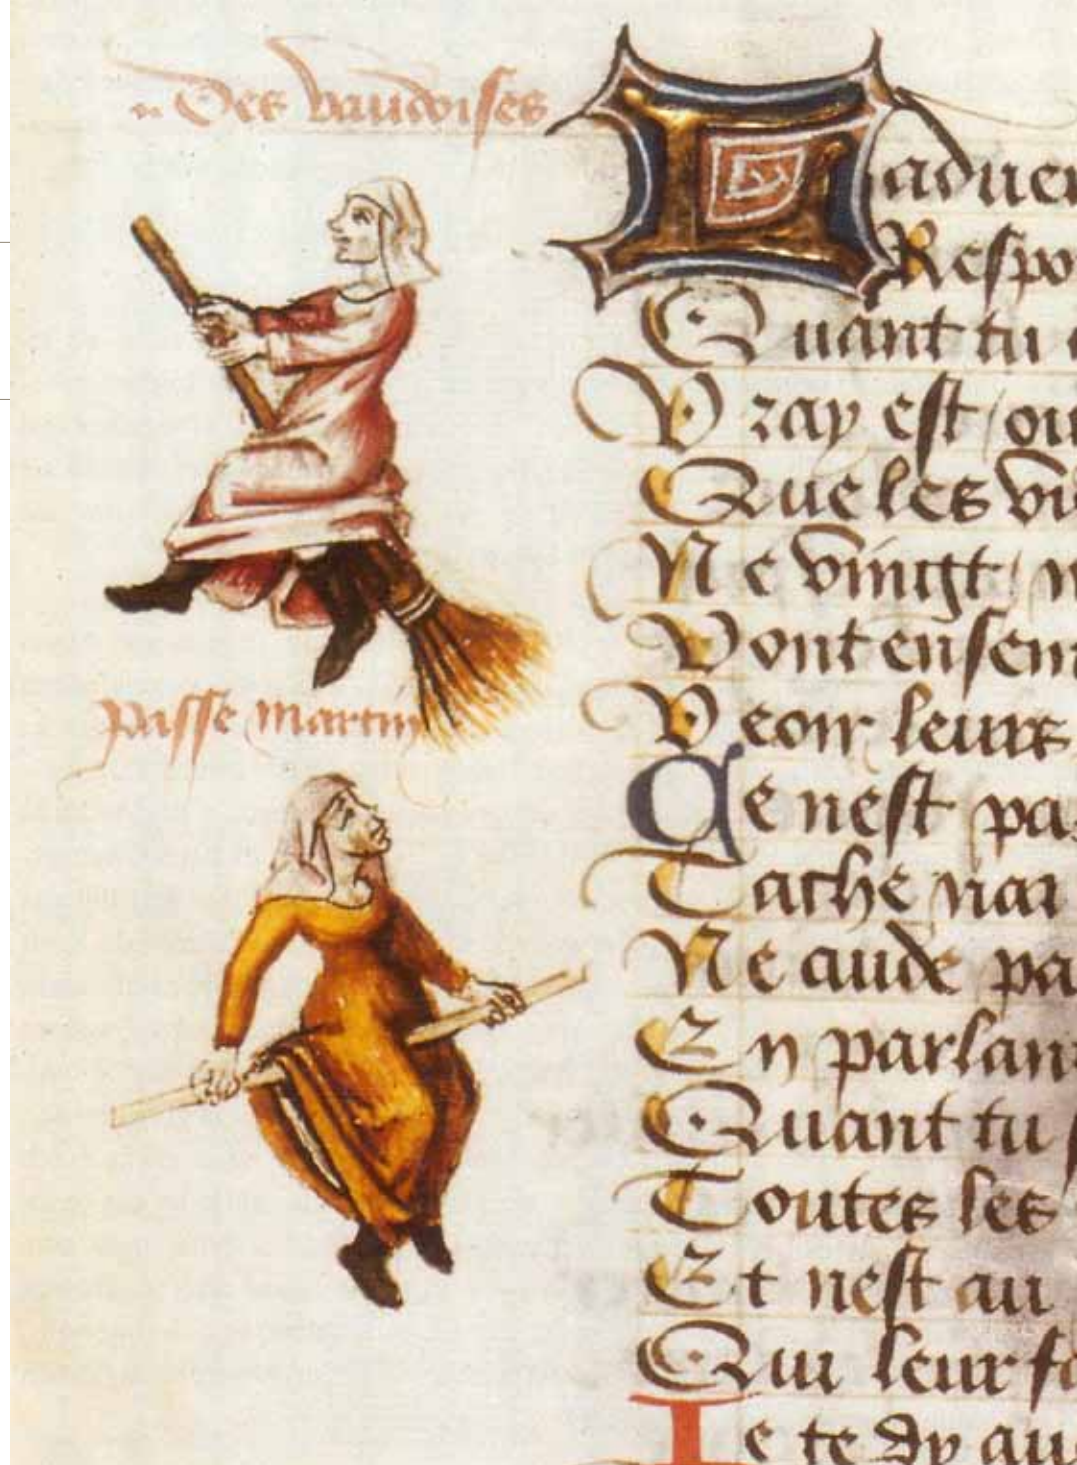 Des vaudoises
passe martin
Laduer
Respo
Quant tu
Vray est / ou
Que les vi
Ne vingt / n
Vont ensem
Veoir leurs
Ce nest pas
Tache nar
Ne aude pa
En parlant
Quant tu
Toutes les
Et nest au
Qui leur fa
Je te dy au